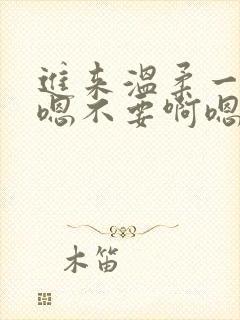 進来温柔一
嗯不要啊嗯
木笛